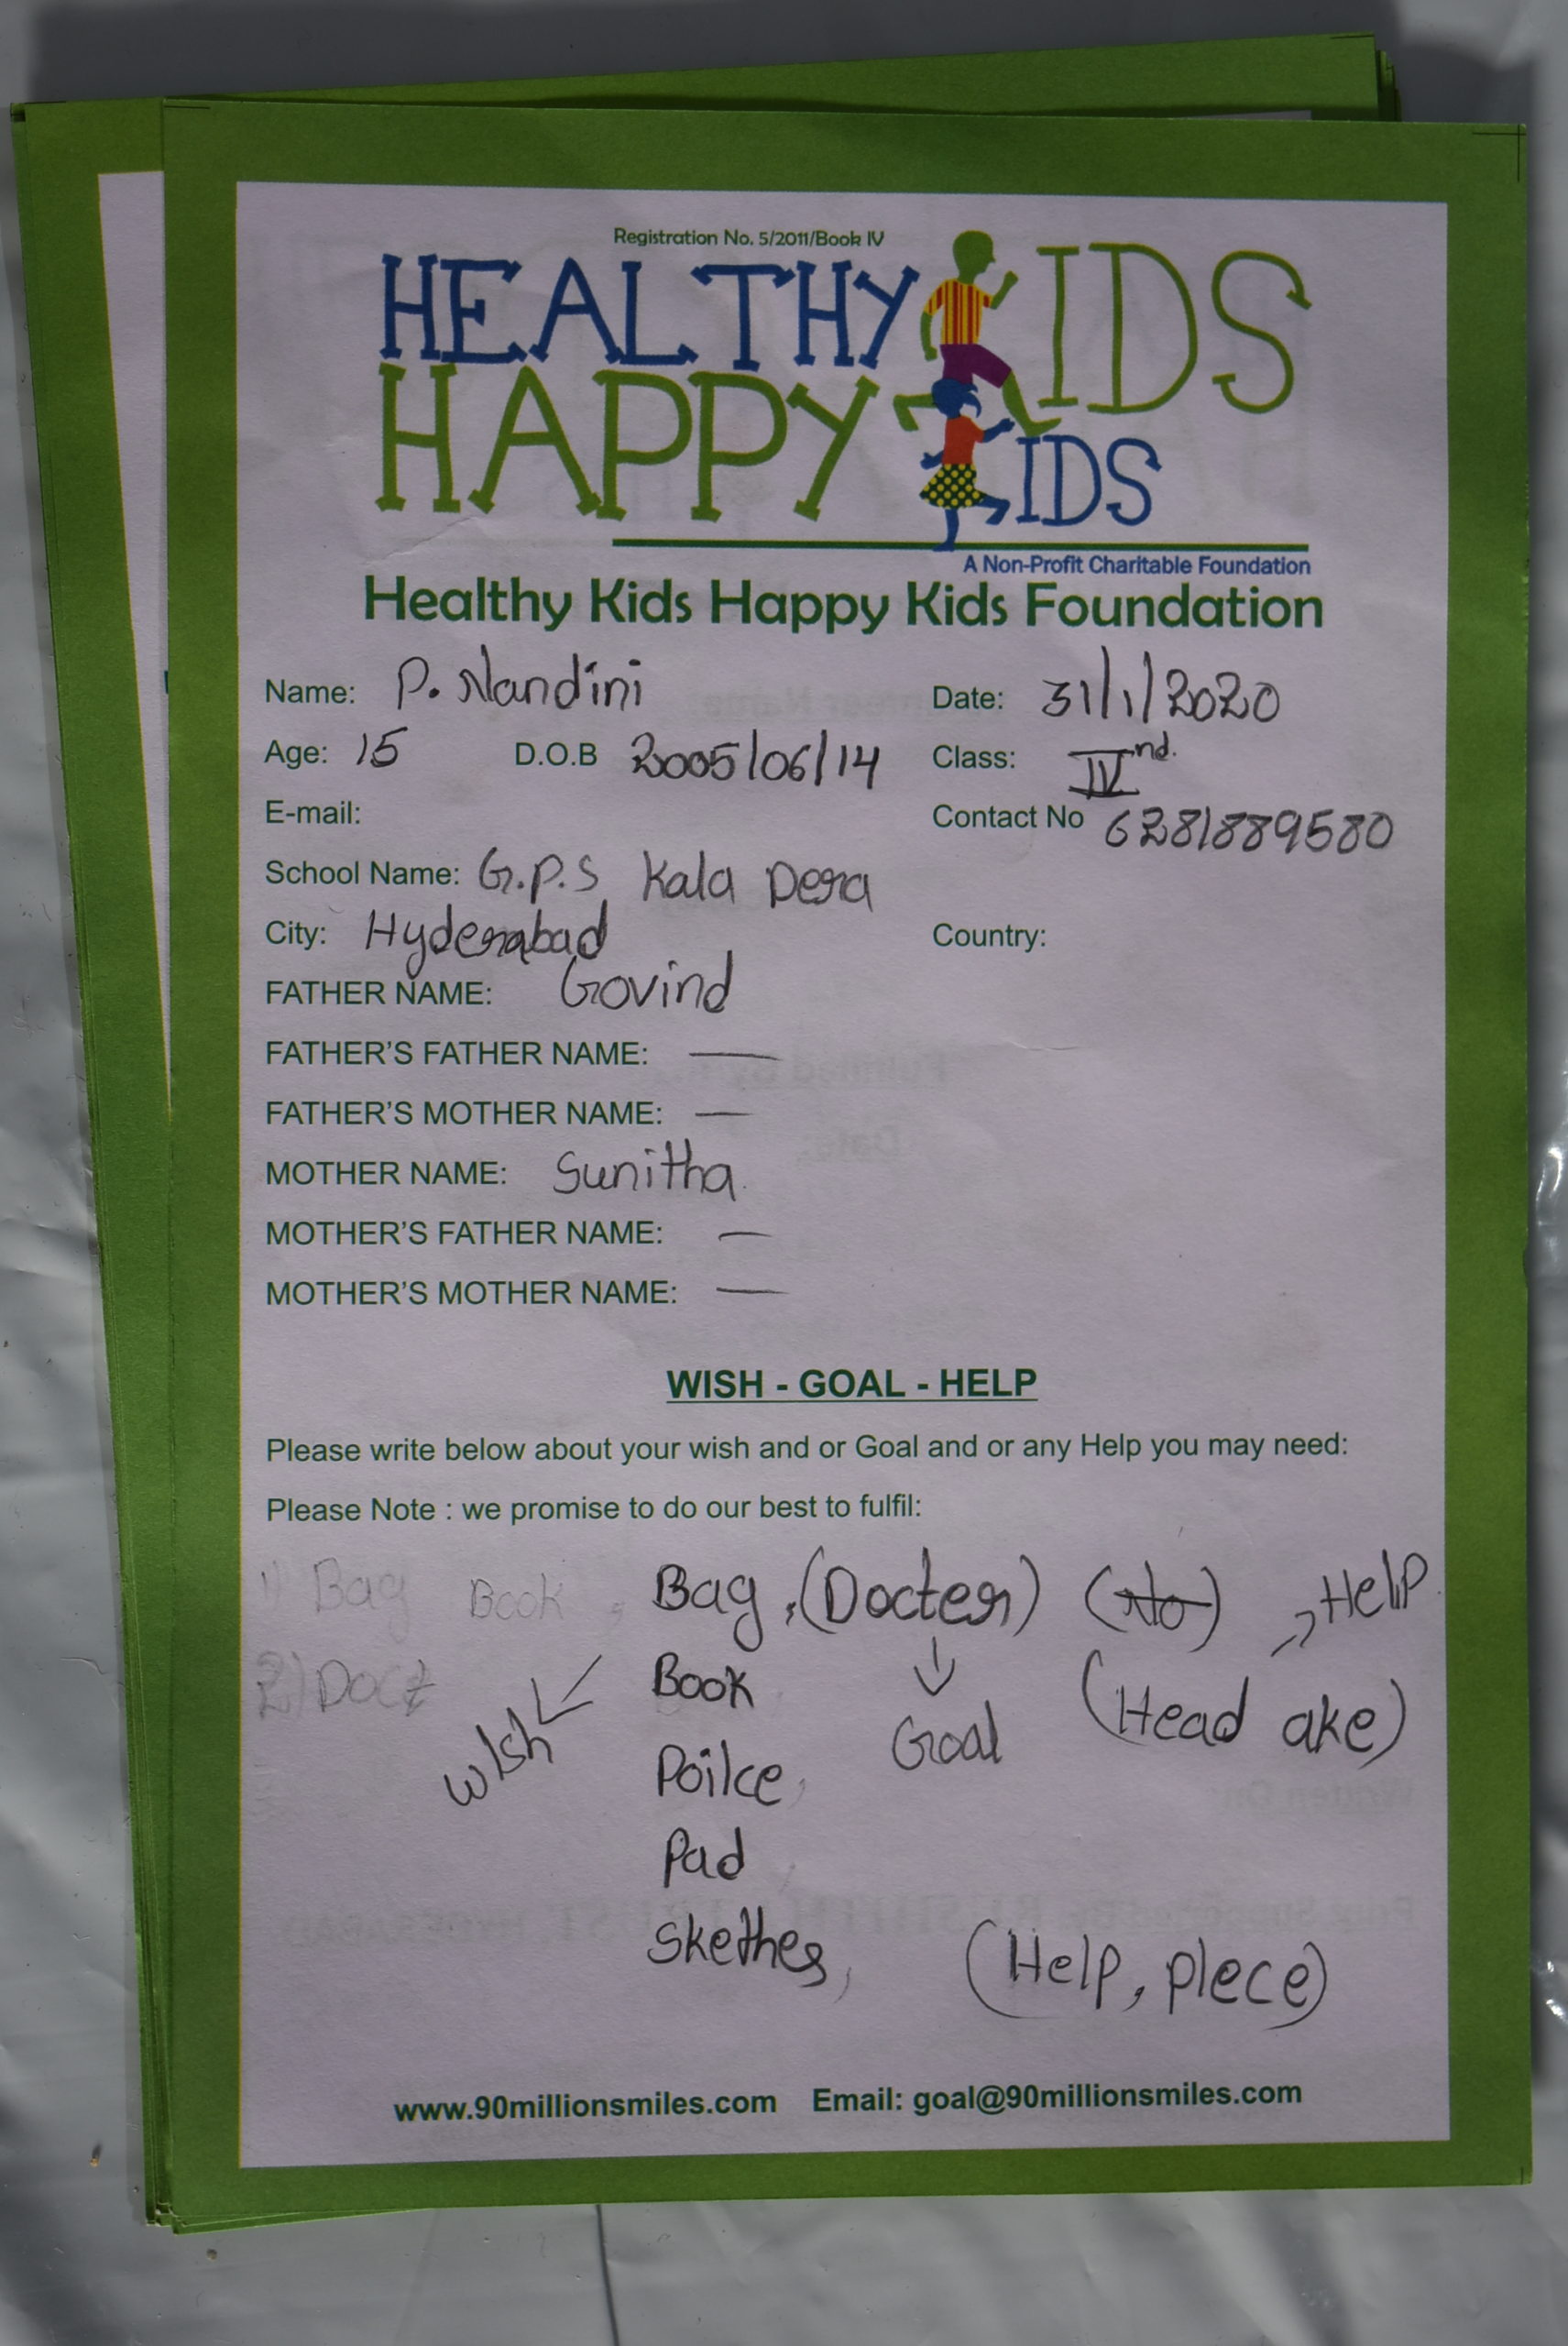 Registration No. 5/2011/Book IV
HEALTHY KIDS
HAPPY KIDS
A Non-Profit Charitable Foundation
Healthy Kids Happy Kids Foundation
Name: P. Nandini Date: 31/1/2020
Age: 15 D.O.B 2005/06/14 Class: IV nd.
E-mail: Contact No 6281889580
School Name: G.P.S Kala Dera
City: Hyderabad Country:
FATHER NAME: Govind
FATHER'S FATHER NAME: —
FATHER'S MOTHER NAME: —
MOTHER NAME: Sunitha
MOTHER'S FATHER NAME: —
MOTHER'S MOTHER NAME: —
WISH - GOAL - HELP
Please write below about your wish and or Goal and or any Help you may need:
Please Note : we promise to do our best to fulfil:
1) Bag Book Bag, (Docter) (No) Help
2) Doct Book (Head ake)
wish Poilce Goal
Pad
Skethes, (Help, plece)
www.90millionsmiles.com Email: goal@90millionsmiles.com